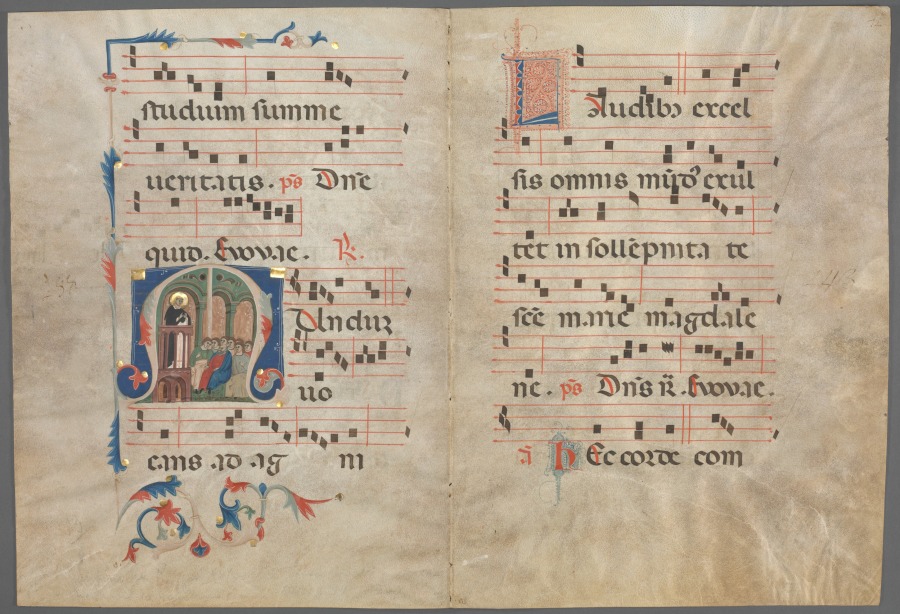 studium summe
ueritatis. ps Dne
quid. Evovae. R.
Mundum
uo
cans ad ag ni
Laudibus excel
sis omnis mundus exul
tet in sollepnita te
sce marie magdale
ne. ps Dns R. Evovae.
a hec corde com